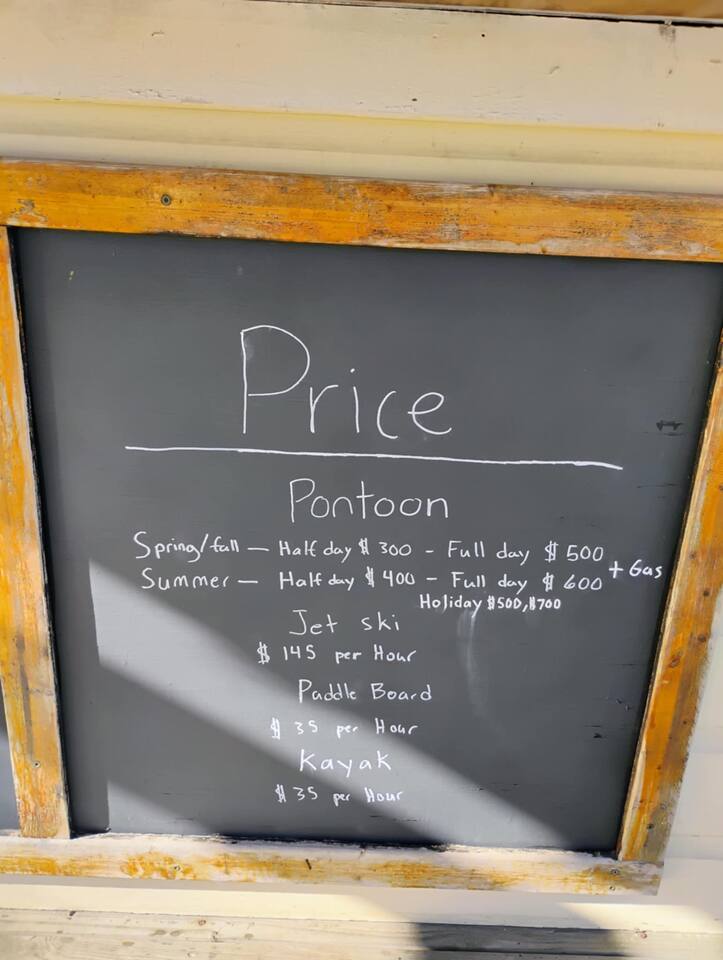 Price
Pontoon
Spring/fall — Half day $ 300 - Full day $ 500
+ Gas
Summer — Half day $ 400 - Full day $ 600
Holiday $500, $700
Jet ski
$ 145 per Hour
Paddle Board
$ 35 per Hour
Kayak
$ 35 per Hour